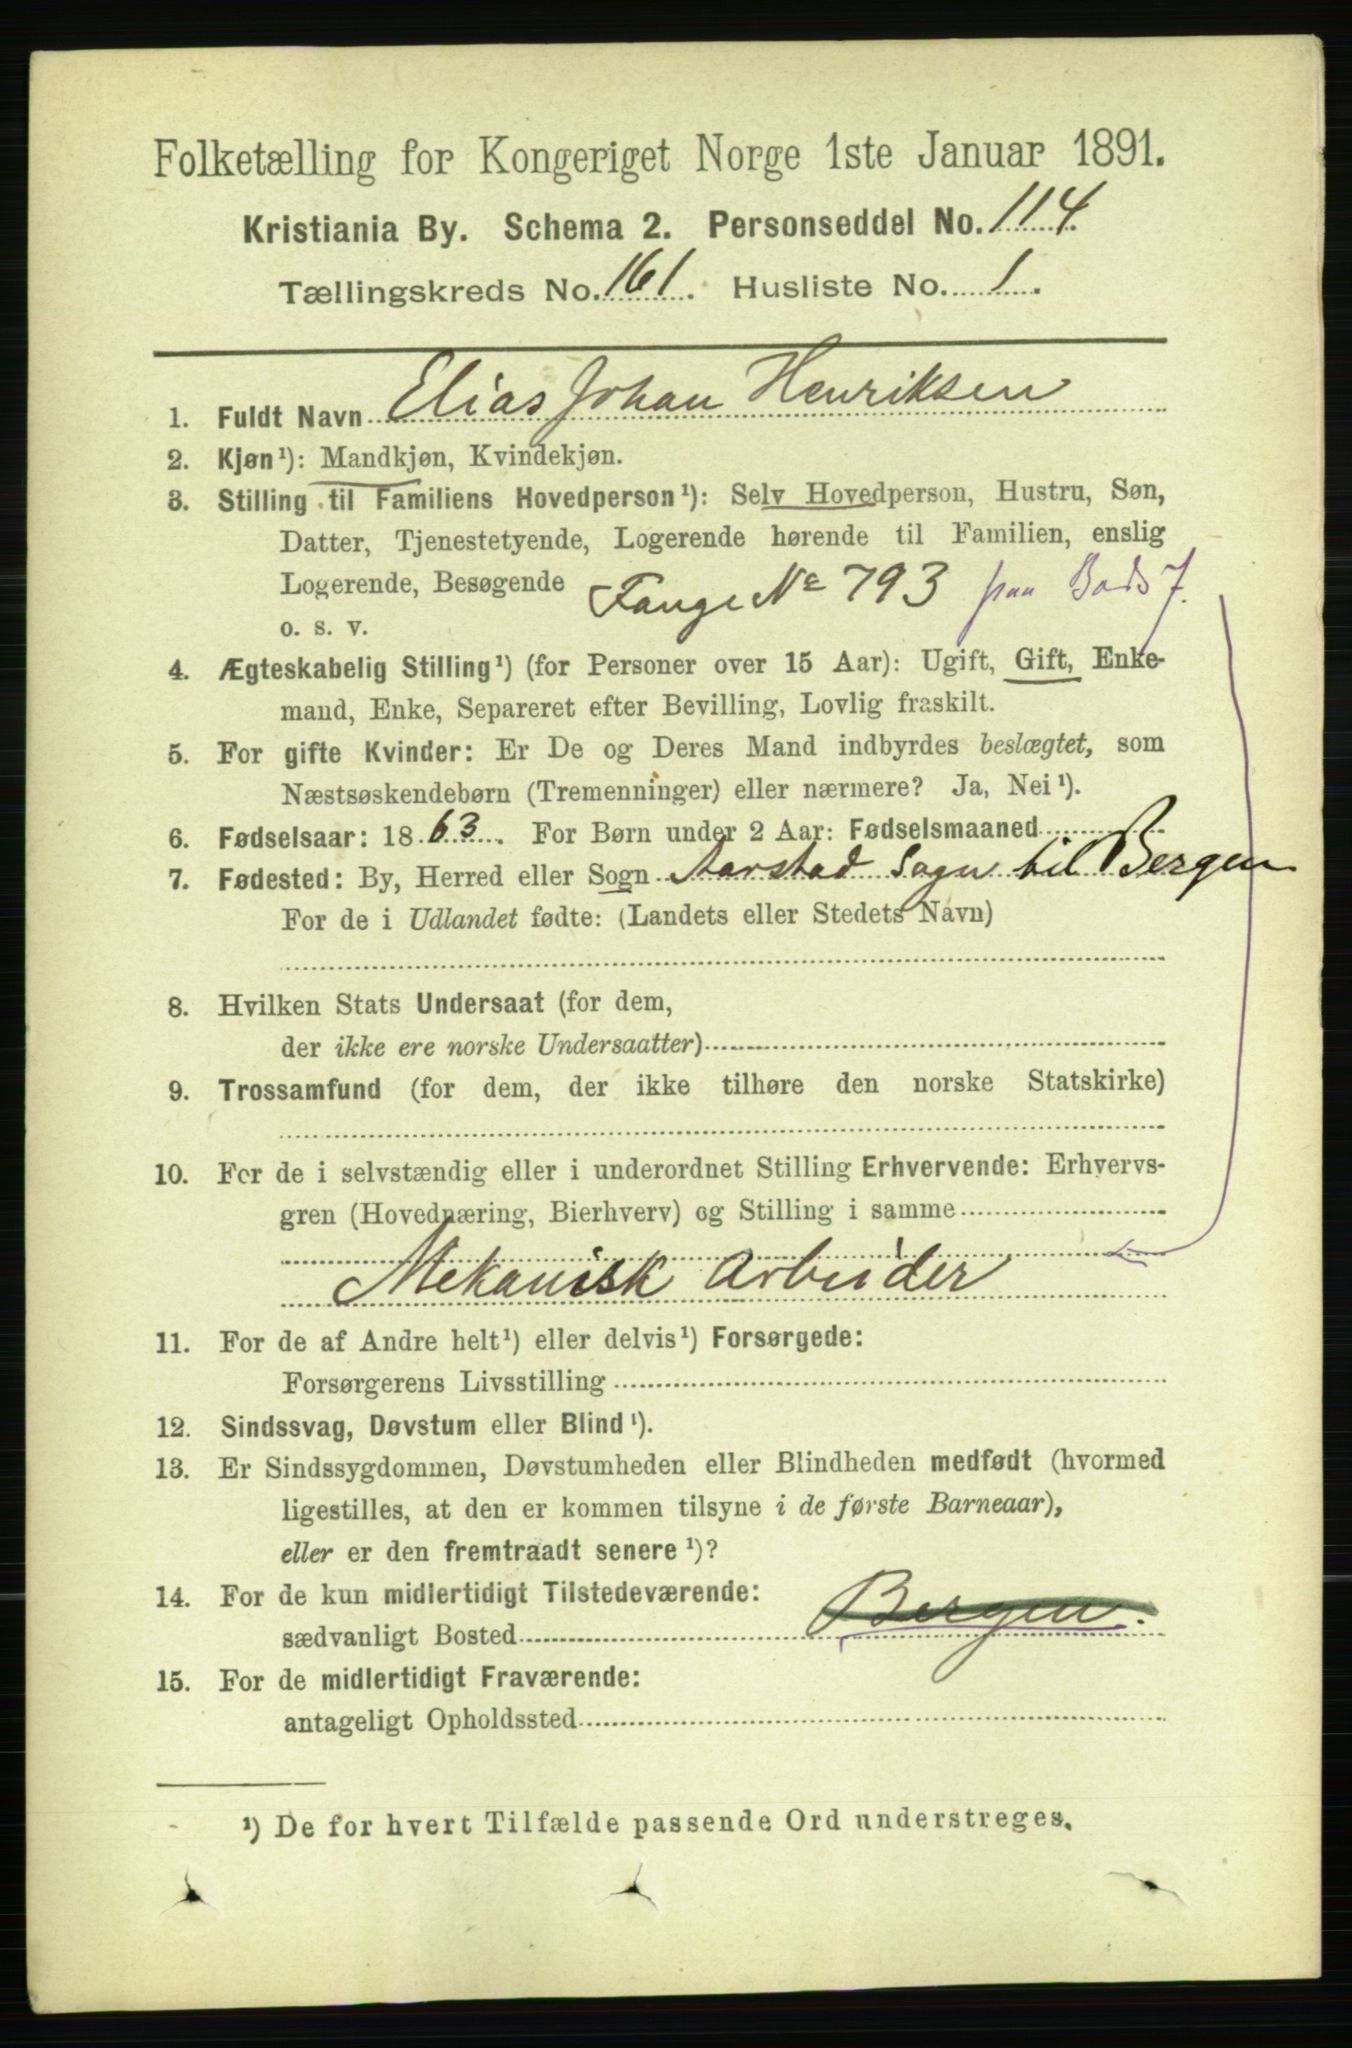 Folketælling for Kongeriget Norge 1ste Januar 1891.
Kristiania By. Schema 2. Personseddel No. 114.
Tællingskreds No. 161. Husliste No. 1.
1. Fuldt Navn Elias Johan Henriksen
2. Kjøn¹): Mandkjøn, Kvindekjøn.
3. Stilling til Familiens Hovedperson¹): Selv Hovedperson, Hustru, Søn,
Datter, Tjenestetyende, Logerende hørende til Familien, enslig
Logerende, Besøgende Fange No 793 paa Bods f.
o. s. v.
4. Ægteskabelig Stilling¹) (for Personer over 15 Aar): Ugift, Gift, Enke-
mand, Enke, Separeret efter Bevilling, Lovlig fraskilt.
5. For gifte Kvinder: Er De og Deres Mand indbyrdes beslægtet, som
Næstsøskendebørn (Tremenninger) eller nærmere? Ja, Nei¹).
6. Fødselsaar: 1863. For Børn under 2 Aar: Fødselsmaaned
7. Fødested: By, Herred eller Sogn Aarstad Sogn til Bergen
For de i Udlandet fødte: (Landets eller Stedets Navn)
8. Hvilken Stats Undersaat (for dem,
der ikke ere norske Undersaatter)
9. Trossamfund (for dem, der ikke tilhøre den norske Statskirke)
10. For de i selvstændig eller i underordnet Stilling Erhvervende: Erhvervs-
gren (Hovednæring, Bierhverv) og Stilling i samme
Mekanisk Arbeider
11. For de af Andre helt¹) eller delvis¹) Forsørgede:
Forsørgerens Livsstilling
12. Sindssvag, Døvstum eller Blind¹).
13. Er Sindssygdommen, Døvstumheden eller Blindheden medfødt (hvormed
ligestilles, at den er kommen tilsyne i de første Barneaar),
eller er den fremtraadt senere¹)?
14. For de kun midlertidigt Tilstedeværende:
sædvanligt Bosted Bergen.
15. For de midlertidigt Fraværende:
antageligt Opholdssted
¹) De for hvert Tilfælde passende Ord understreges.